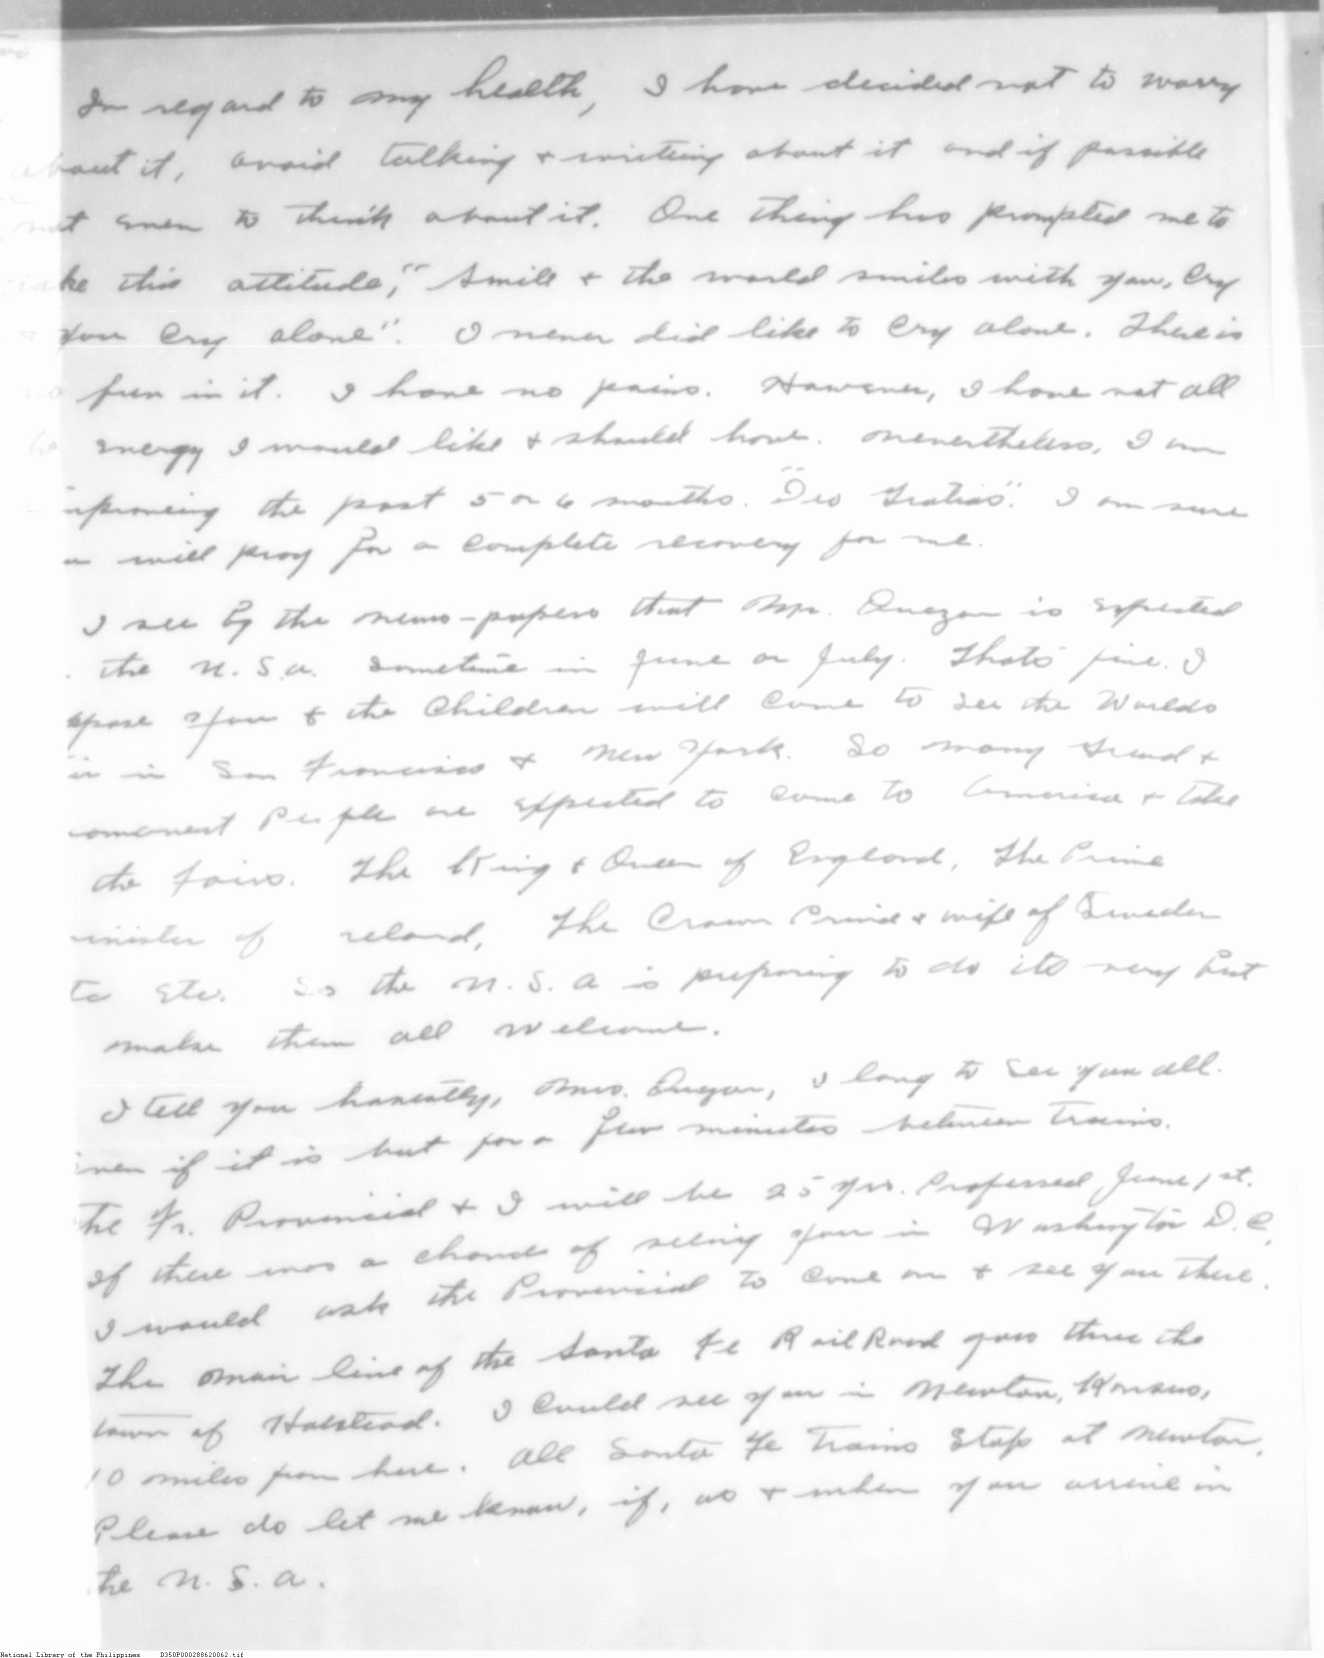 In regard to my health, I have decided not to worry
about it, avoid talking & writing about it and if possible
not even to think about it. One thing has prompted me to
take this attitude, "Smile & the world smiles with you, Cry
& you Cry alone". I never did like to Cry alone. There is
no fun in it. I have no pains. However, I have not all
the energy I would like & should have. Nevertheless, I am
improving the past 5 or 6 months. "Deo Gratias". I am sure
will pray for a complete recovery for me.
I see by the news-papers that Mr. Quezon is expected
the U.S.A. sometime in June or July. Thats fine. I
you & the Children will come to see the Worlds
in San Francisco & New York. So many &
People are expected to come to America & take
the fairs. The King & Queen of England, The Prime
minister of reland, The Crown Prince & wife of Sweden
etc. So the U.S.A is preparing to do its very best
make them all welcome.
I tell you honestly, Mrs. Quezon, I long to see you all.
even if it is but for a few minutes between trains.
The Fr. Provincial & I will be 25 yrs. Professed June 1st.
If there was a chance of seeing you in Washington D.C.
I would ask the Provincial to come on & see you there.
The main line of the Santa Fe Rail Road goes thru the
town of Halstead. I could see you in Newton, Kansas,
10 miles from here. All Santa Fe Trains Stop at Newton.
Please do let me know, if, as & when you arrive in
the U.S.A.
National Library of the Philippines D350P000288620062.tif